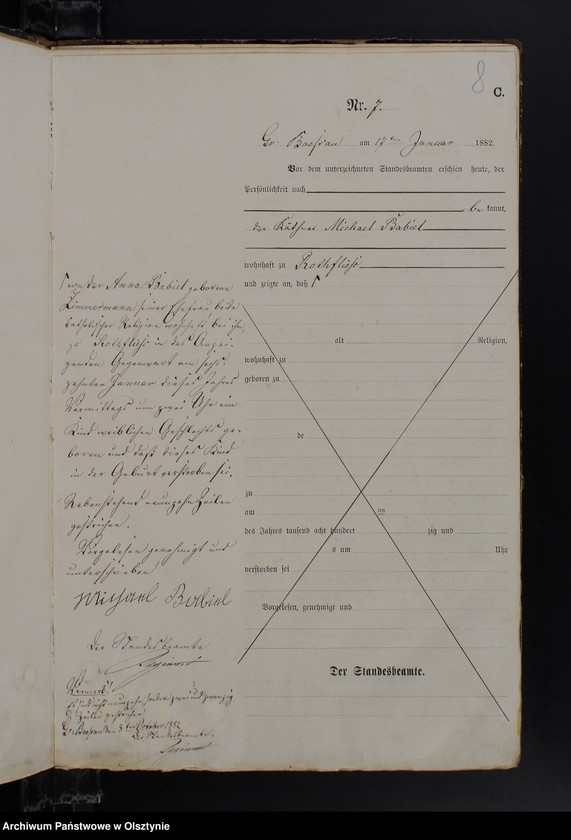 8
C.
Nr. 7.
Gr: Boessau am 17ten Januar 1882.
Vor dem unterzeichneten Standesbeamten erschien heute, der
Persönlichkeit nach
be kannt,
der Käthner Michael Babiel
wohnhaft zu Rothfließ
und zeigte an, daß
von der Anna Babiel geborene
Zimmermann seiner Ehefrau, beide
katholischer Religion wohnhaft bei ihm
zu Rothfließ in des Anzei-
genden Gegenwart am sechs
zehnten Januar dieses Jahres
Vormittags um zwei Uhr ein
Kind weiblichen Geschlechts ge-
boren und daß dieses Kind
in der Geburt verstorben sei.
Nebenstehend neunzehn Zeilen
gestrichen.
Vorgelesen genehmigt und
unterschrieben
Michael Babiel
Der Standesbeamte
Vermerk!
Es sind nicht neunzehn sondern zwei und zwanzig
Zeilen gestrichen
den 8ten October 1882
Der Standesbeamte.
alt Religion,
wohnhaft zu
geboren zu
de
zu
am ten
des Jahres tausend acht hundert zig und
s um Uhr
verstorben sei
Vorgelesen, genehmigt und
Der Standesbeamte.
Archiwum Państwowe w Olsztynie